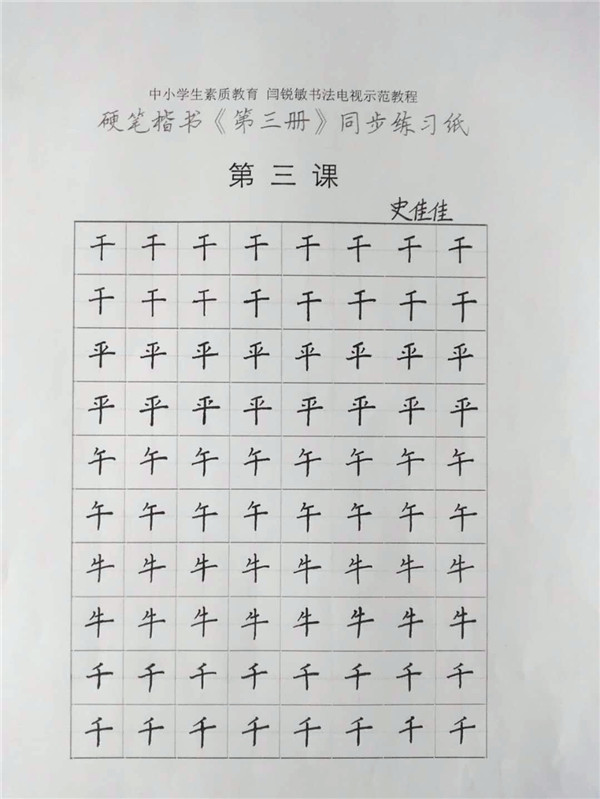 中小学生素质教育 闫锐敏书法电视示范教程
硬笔楷书《第三册》同步练习纸
第三课
史佳佳
干 干 干 干 干 干 干 干
干 干 干 干 干 干 干 干
平 平 平 平 平 平 平 平
平 平 平 平 平 平 平 平
午 午 午 午 午 午 午 午
午 午 午 午 午 午 午 午
牛 牛 牛 牛 牛 牛 牛 牛
牛 牛 牛 牛 牛 牛 牛 牛
千 千 千 千 千 千 千 千
千 千 千 千 千 千 千 千